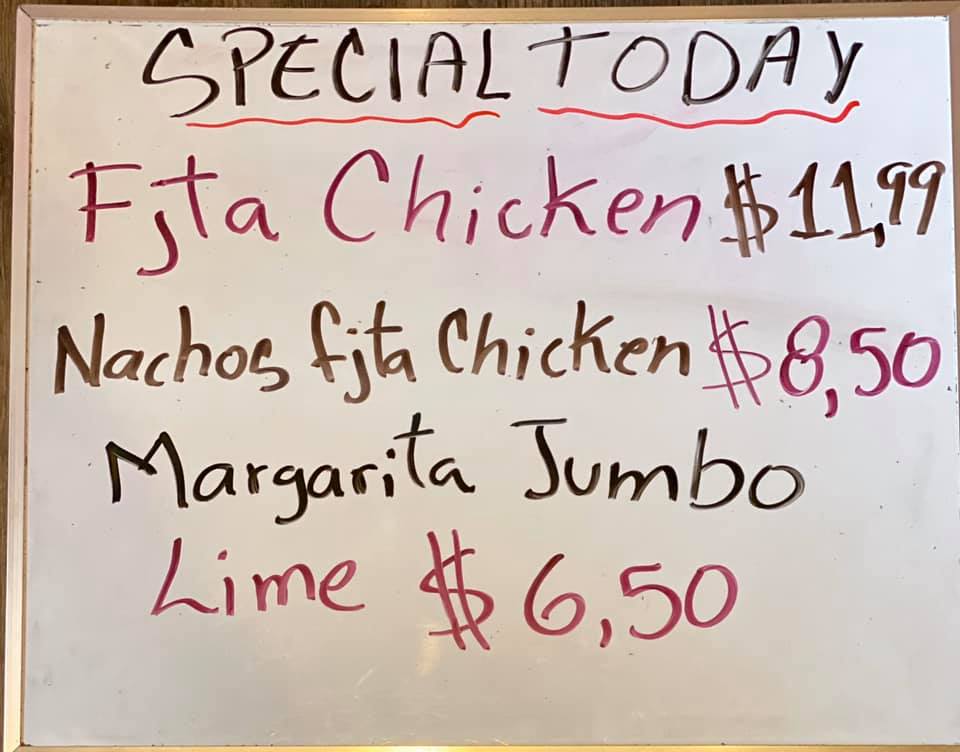 SPECIAL TODAY
Fjta Chicken $11,99
Nachos fjta Chicken $8,50
Margarita Jumbo
Lime $6,50